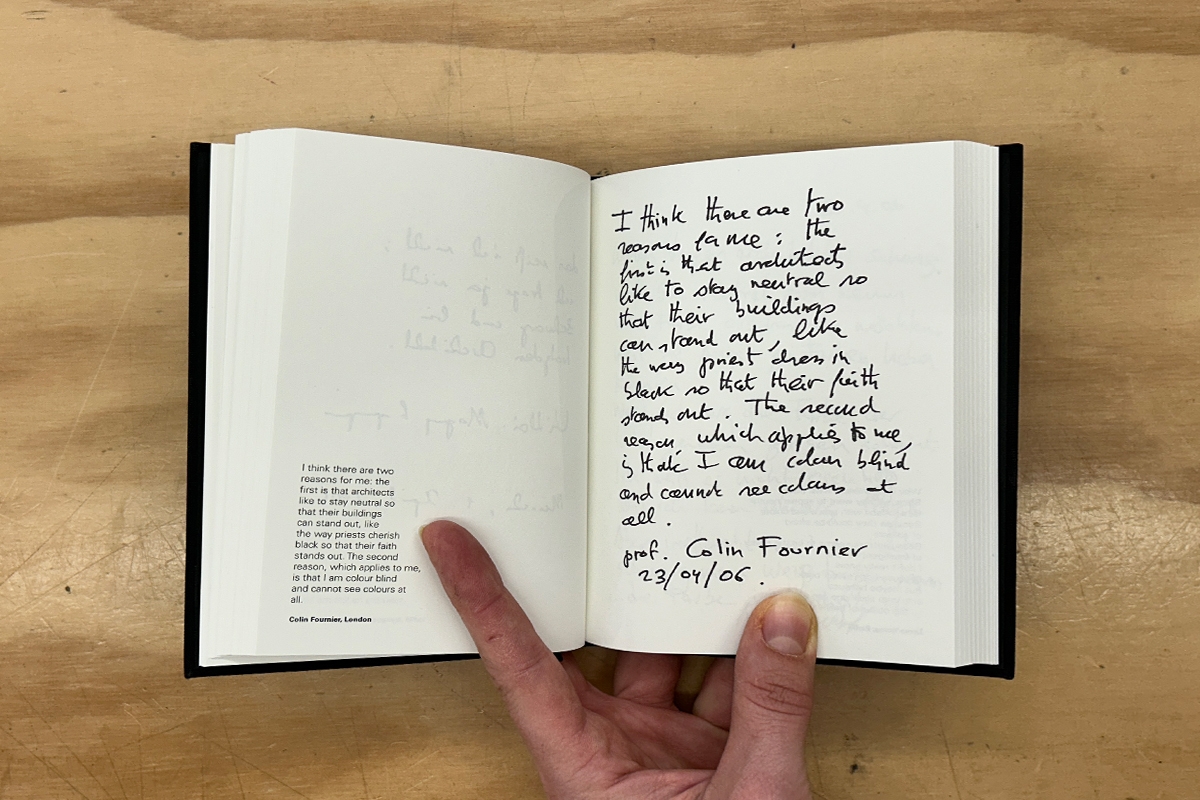 I think there are two
reasons for me: the
first is that architects
like to stay neutral so
that their buildings
can stand out, like
the way priests cherish
black so that their faith
stands out. The second
reason, which applies to me,
is that I am colour blind
and cannot see colours at
all.
Colin Fournier, London
I think there are two
reasons for me : the
first is that architects
like to stay neutral so
that their buildings
can stand out, like
the way priest dress in
black so that their faith
stands out. The second
reason, which applies to me,
is that I am colour blind
and cannot see colours at
all.
prof. Colin Fournier
23/04/06.